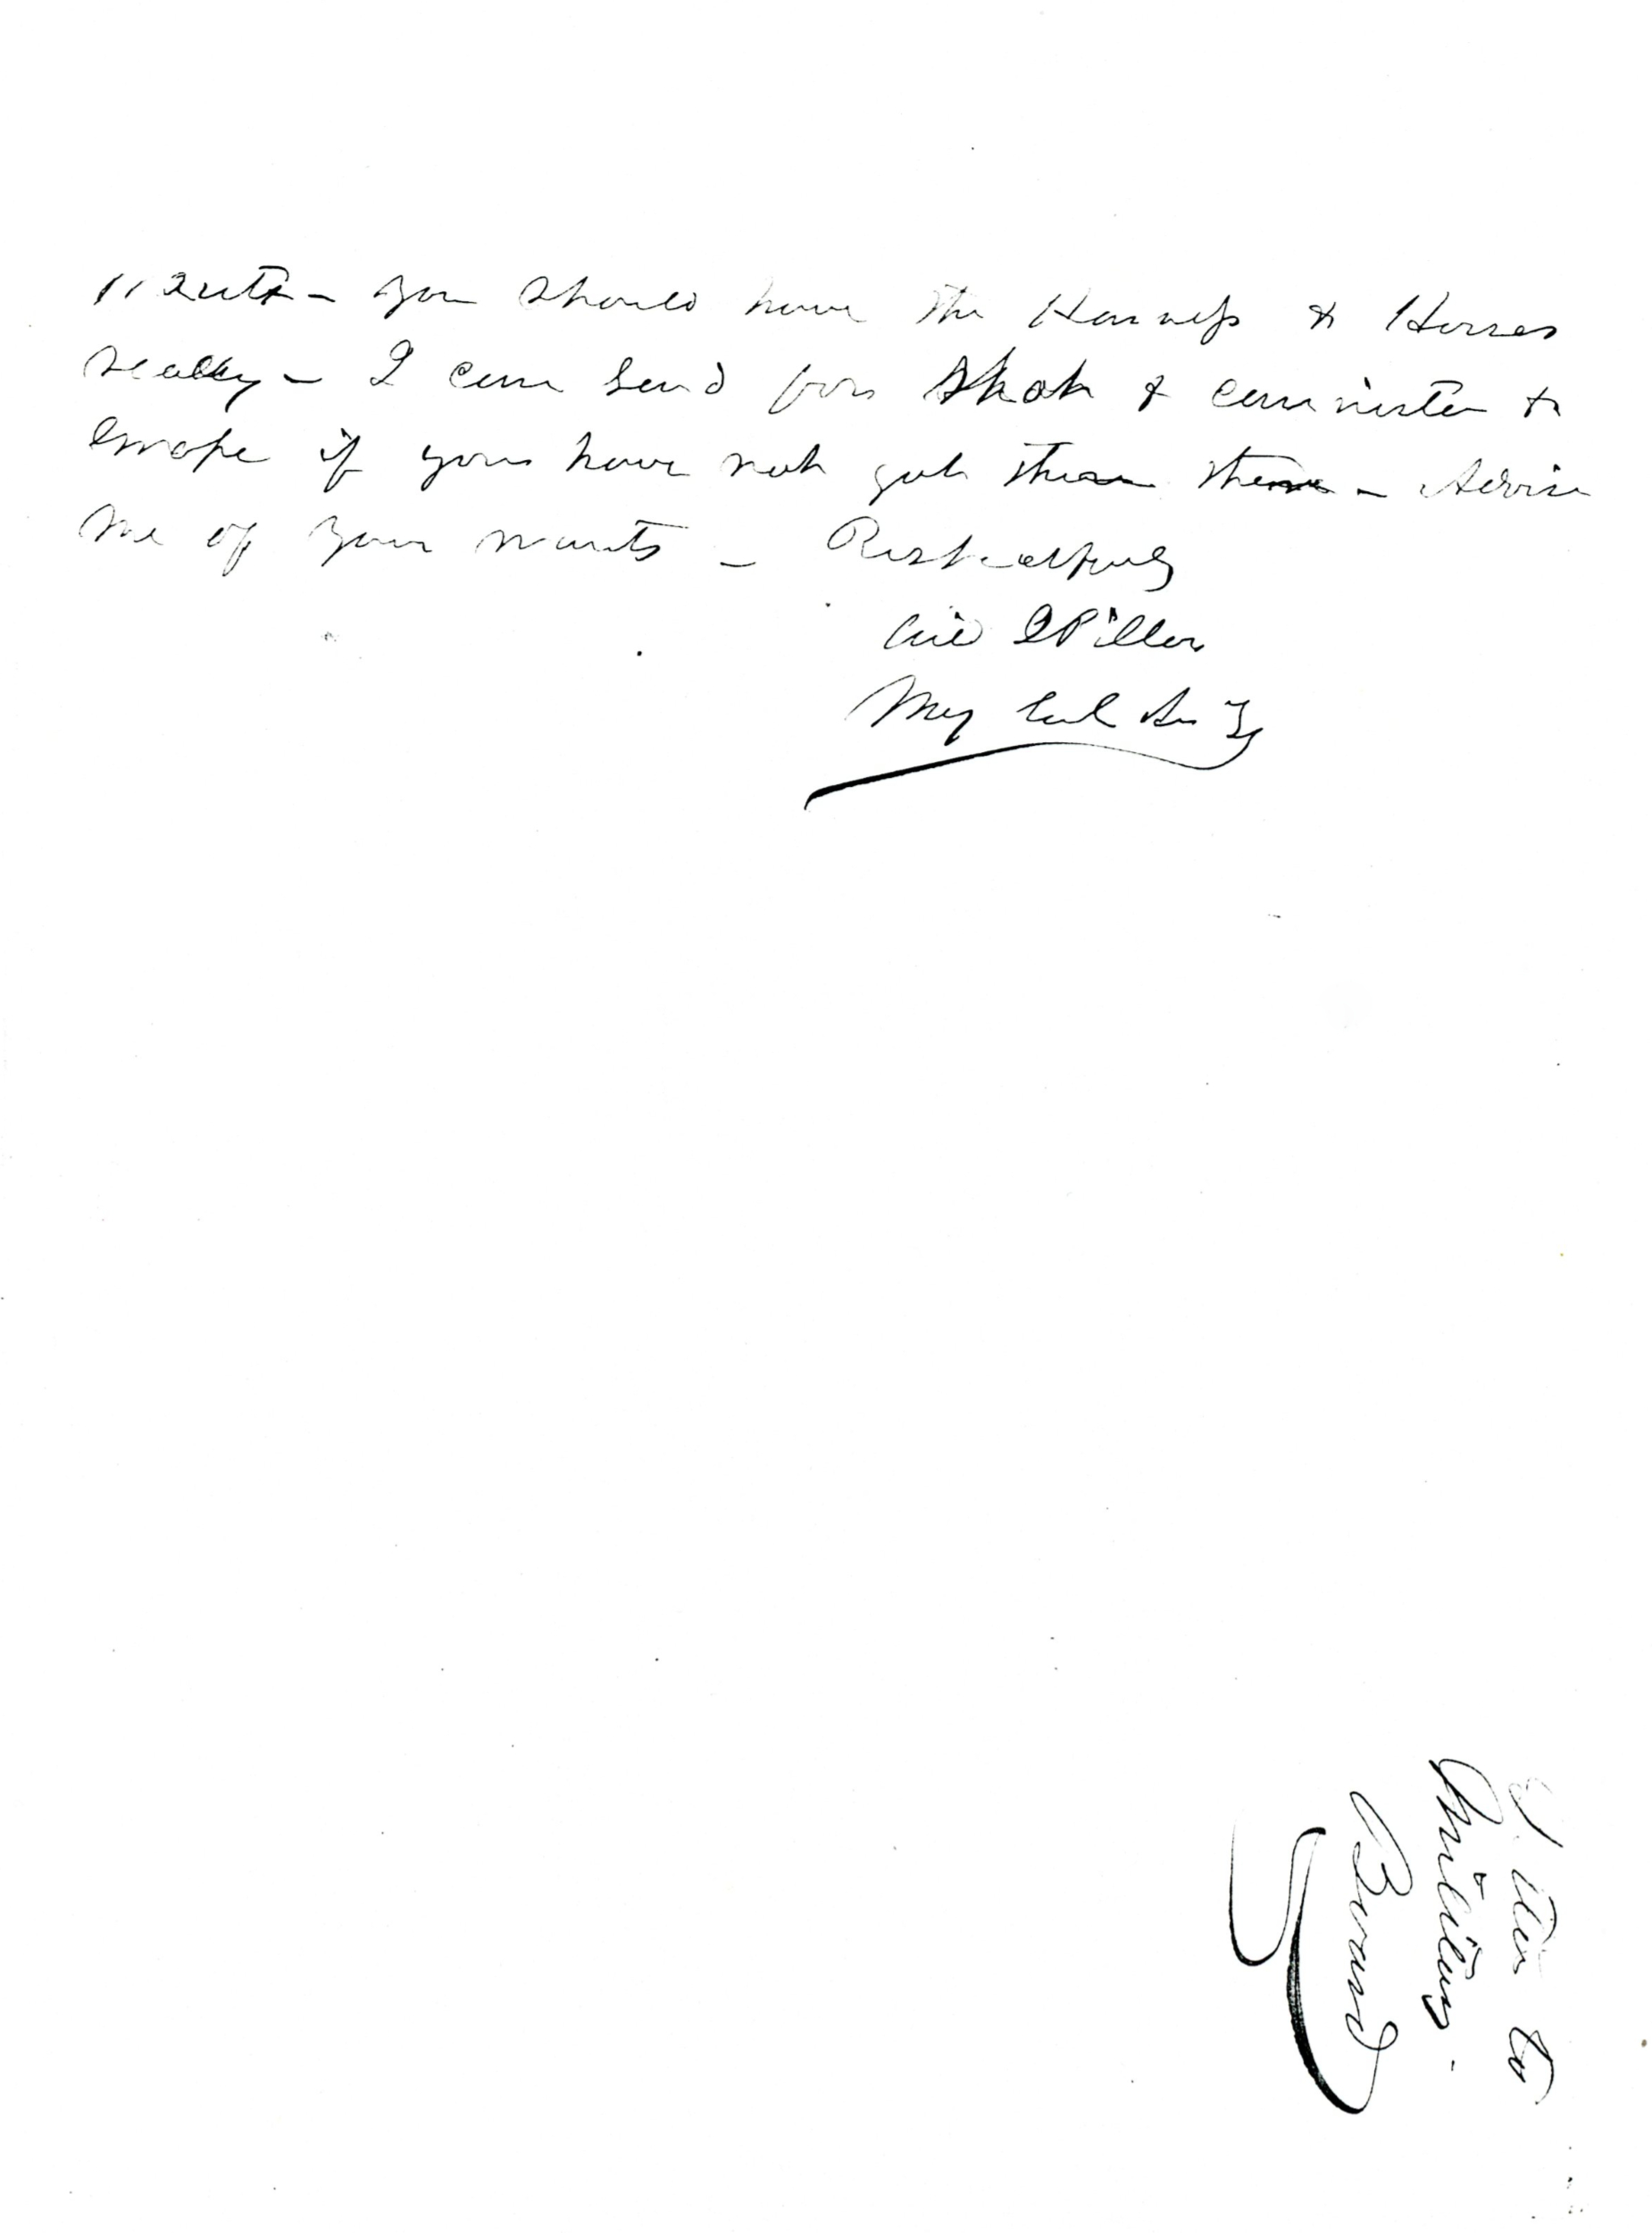 you should have the Harness & Horses
ready – I can send for Shot & cannister &
if you have not got them – Advise
me of your wants – Respectfully
Gid J Pillow
Maj Genl
to
Military